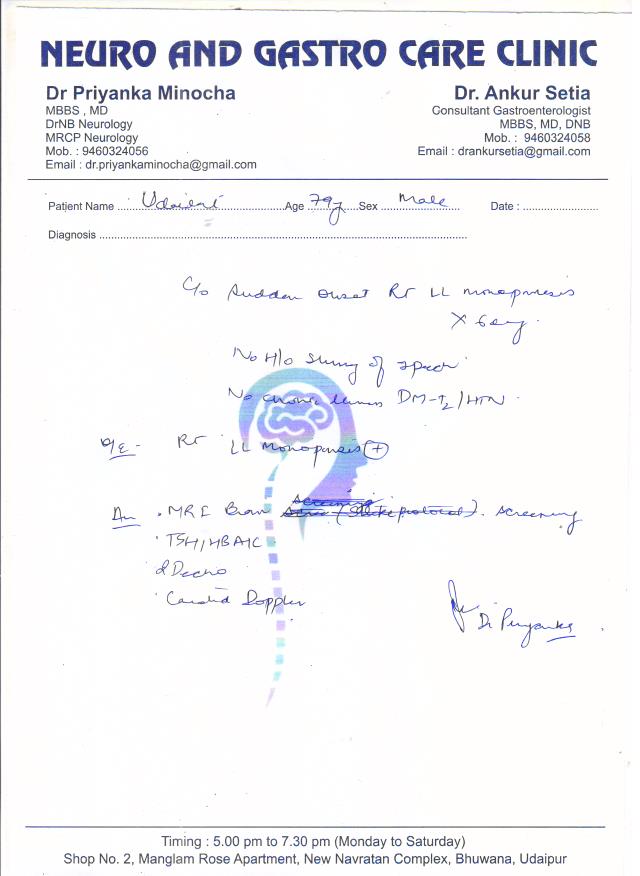 NEURO AND GASTRO CARE CLINIC
Dr Priyanka Minocha
MBBS , MD
DrNB Neurology
MRCP Neurology
Mob. : 9460324056
Email : dr.priyankaminocha@gmail.com
Dr. Ankur Setia
Consultant Gastroenterologist
MBBS, MD, DNB
Mob. : 9460324058
Email : drankursetia@gmail.com
Patient Name Age 79y Sex Male Date :
Diagnosis
C/o Sudden onset Rt LL monoparesis
No H/o slurring of speech
No chronic illness DM-T2/HTN
O/E - Rt LL monoparesis +
MRI Brain screening (Stroke protocol). screening
TSH/HBA1C
2D echo
Carotid Doppler
Dr Priyanka
Timing : 5.00 pm to 7.30 pm (Monday to Saturday)
Shop No. 2, Manglam Rose Apartment, New Navratan Complex, Bhuwana, Udaipur